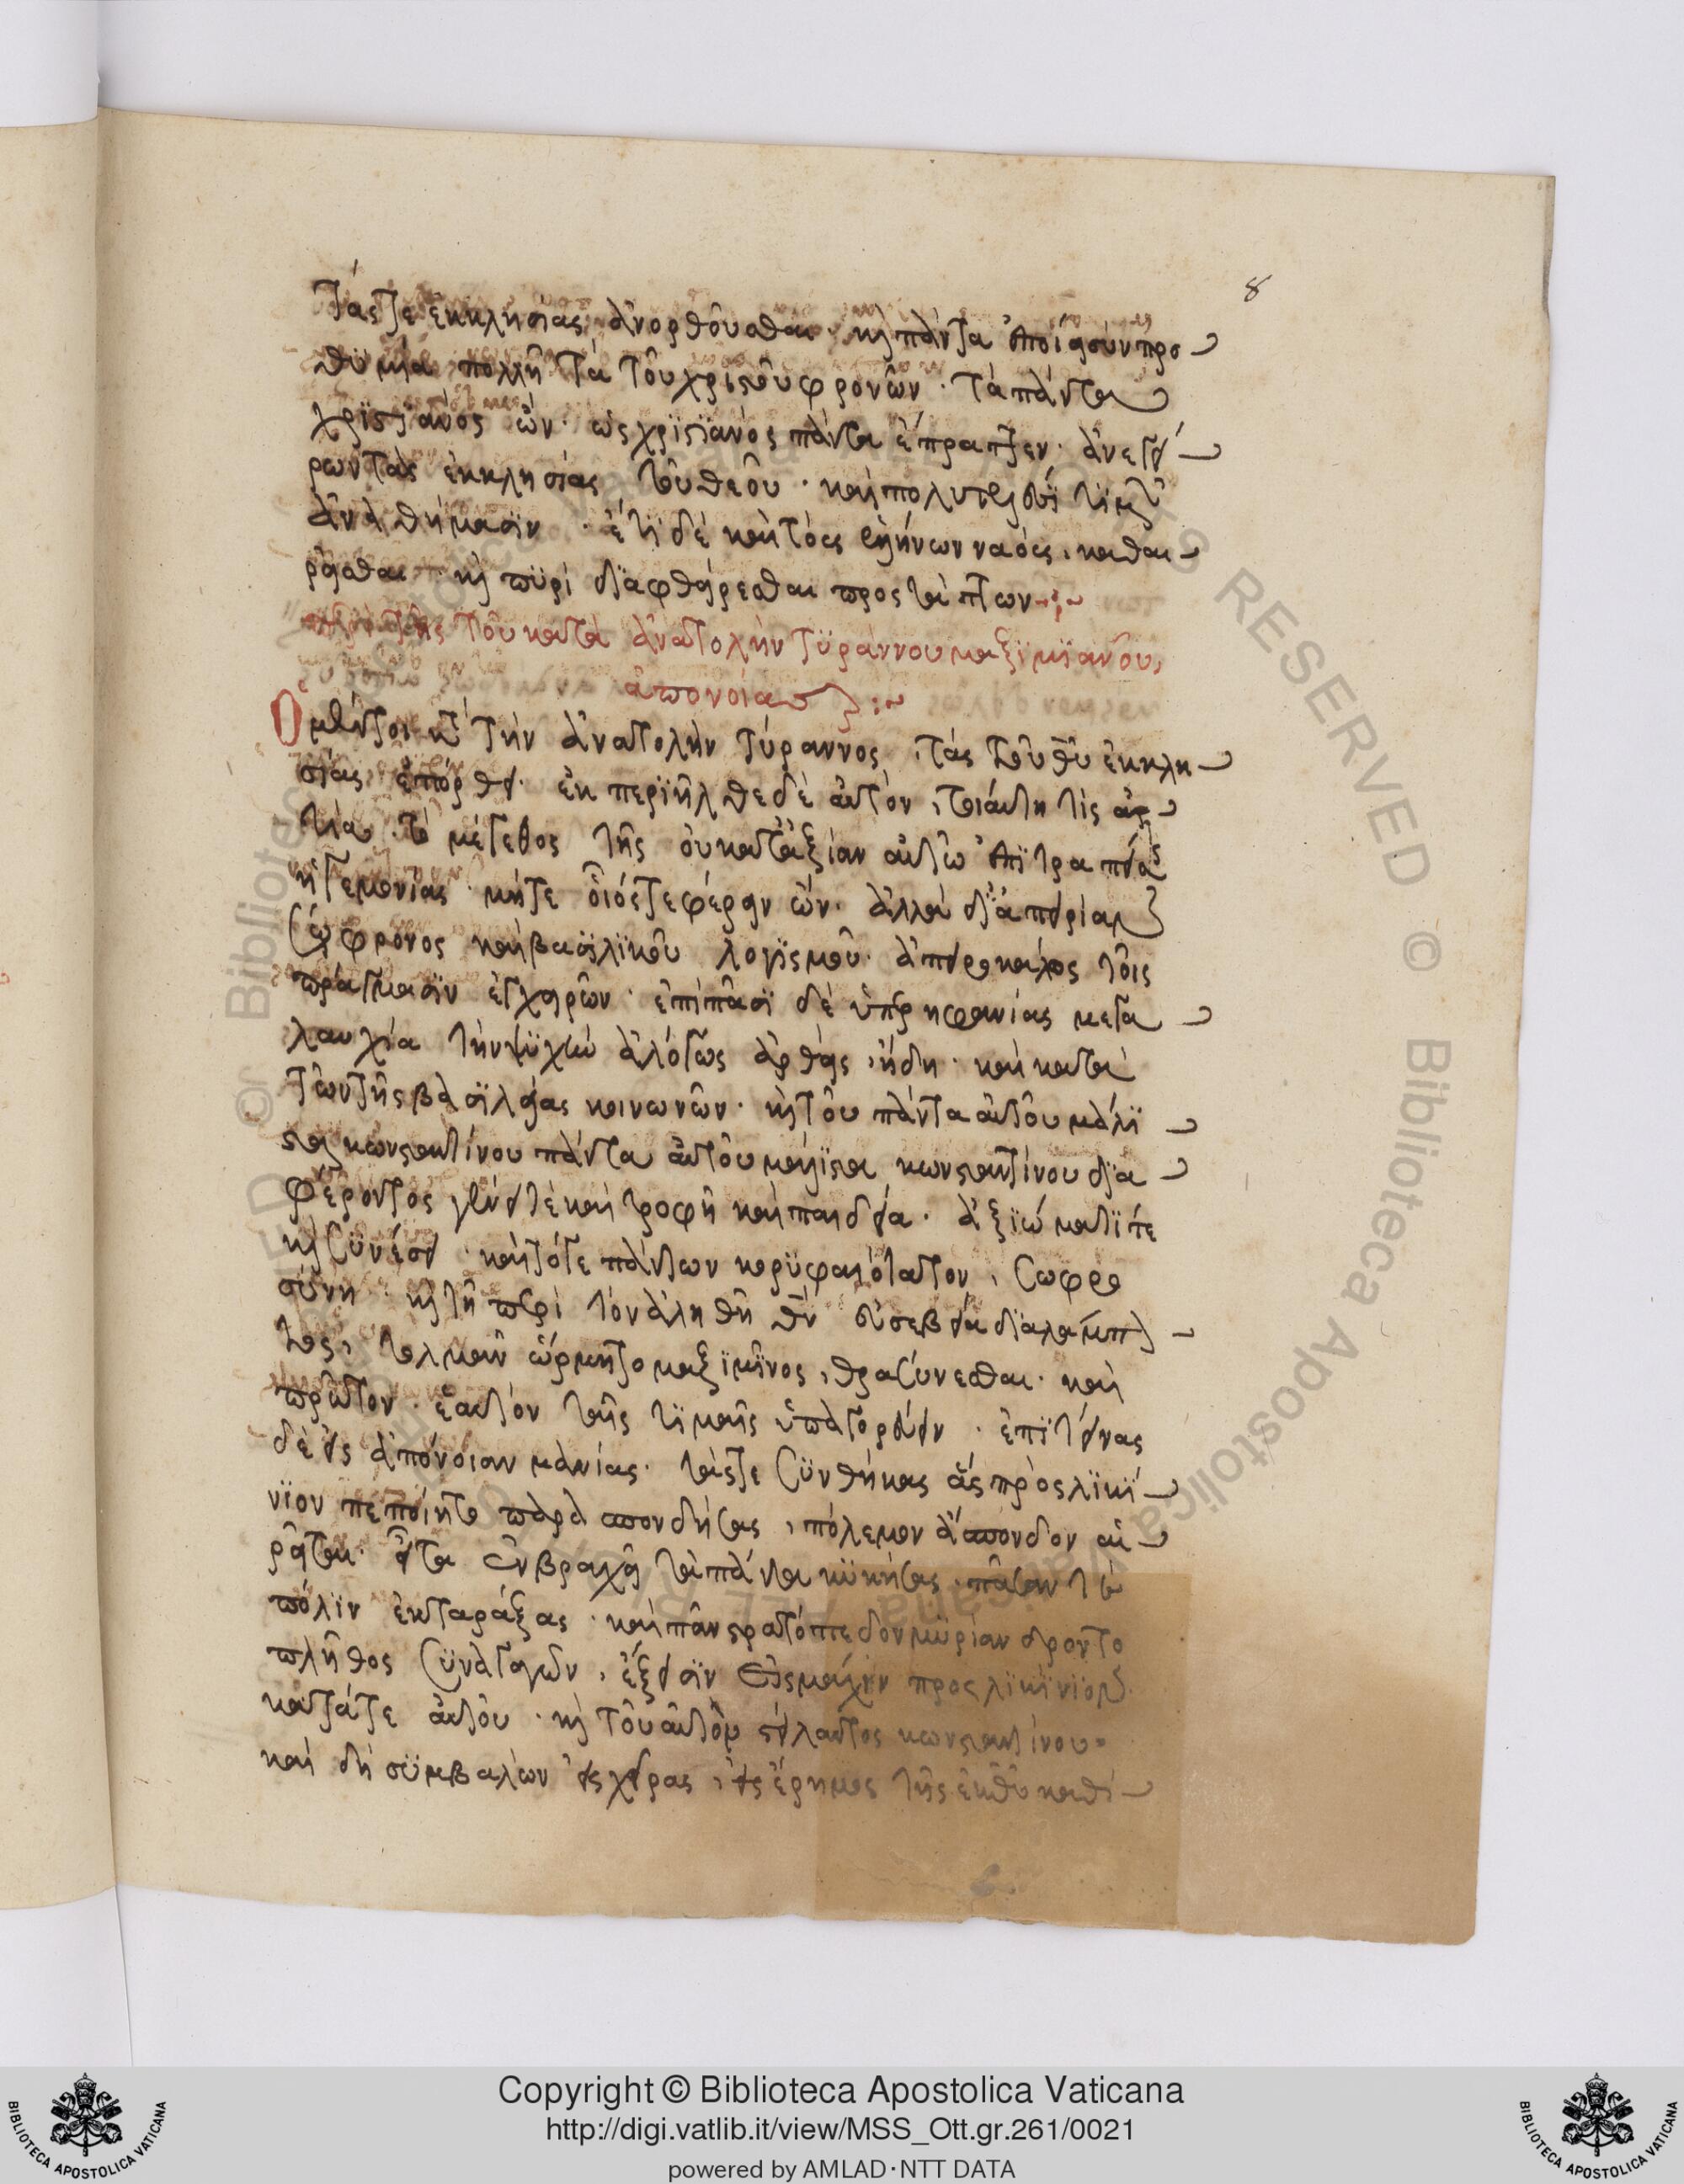 8
τάς τε ἐκκλησίας ἀνορθοῦσθαι· κὶ πάντα ἐποίει σὺν προ
θϋμία πολλῆ τὰ τοῦ χριστοῦ φρονῶν· τὰ πάντα
χρϊστϊανὸς ὢν· ὡς χρϊστϊανὸς πάντα ἔπραττεν· ἀνεγεί
ρων τὰς ἐκκλησίας τοῦ θεοῦ· καὶ πολυτελέσϊ τϊμῶν
ἀναθήμασϊν· ἔτϊ δὲ καὶ τοὺς ἑλλήνων ναοὺς, καθαι
ρεῖσθαι· κὶ πϋρὶ δϊαφθείρεσθαι προστάττων
τῆς τοῦ κατὰ ἀνατολὴν τϋράννου μαξϊμϊανοῦ,
ἀπονοίας
Ὁ μέντοι κατὰ τὴν ἀνατολὴν τύραννος, τὰς τοῦ θυ ἐκκλη
σίας ἐπόρθει· ἐκπερϊῆλθε δὲ αὐτὸν, τοιαύτη τίς αἰ
τία· τὸ μέγεθος τῆς οὐ κατ' ἀξίαν αὐτῶ ἐπϊτραπείσης
ἡγεμονίας· μήτε οἷός τε φέρειν ὤν· ἀλλὰ δϊ' ἀπειρίαν
σώφρονος καὶ βασϊλϊκοῦ λογϊσμοῦ· ἀπειροκάλως τοῖς
πράγμασϊν ἐγχειρῶν· ἐπὶ πᾶσϊ δὲ ὑπερηφανίας μεγα
λαυχία τὴν ψϋχὴν ἀλόγως ἀρθεὶς, ἤδη· καὶ κατὰ
τῶν τῆς βασϊλείας κοινωνῶν· κὶ τοῦ πάντα αὐτοῦ μάλϊ
στα κωνσταντίνου πάντα αὐτοῦ μάλϊστα κωνσταντίνου δϊα
φέροντος γένει τὲ καὶ τροφῆ καὶ παιδεία· ἀξϊώματϊ τε
κὶ σϋνέσει· καὶ τότε πάντων κορϋφαιότατον, σωφρο
σύνη· κὶ τῆ περὶ τὸν ἀληθῆ θν εὐσεβεία δϊαλάμπον
τος, τολμᾶν ὥρμητο μαξϊμῖνος, θρασύνεσθαι· καὶ
πρῶτον· ἑαυτὸν ταῖς τϊμαῖς ὑπαγορεύειν· ἐπϊτείνας
δὲ εἰς ἀπόνοιαν μανίας· τάς τε σϋνθήκας ἃς πρὸς λϊκϊ
νϊον πεποίητο παρασπονδήσας, πόλεμον ἄσπονδον αἱ
ρεῖται· εἶτα ἐν βραχεῖ τὰ πάντα κϋκήσας· πᾶσαν τὲ
πόλϊν ἐκταράξας· καὶ πᾶν στρατόπεδον μϋρίαν
πλῆθος σϋναγαγὼν, ἔξεισϊν εἰς μάχην πρὸς λϊκϊνϊον
κατά τε αὐτοῦ· κὶ τοῦ αὐτὸν στείλαντος κωνσταντίνου·
καὶ δὴ σϋμβαλὼν εἰς χεῖρας, εἰς ἔρημος τῆς ἐκ θυ καθί
Copyright © Biblioteca Apostolica Vaticana
http://digi.vatlib.it/view/MSS_Ott.gr.261/0021
powered by AMLAD·NTT DATA
BIBLIOTECA APOSTOLICA VATICANA
BIBLIOTECA APOSTOLICA VATICANA